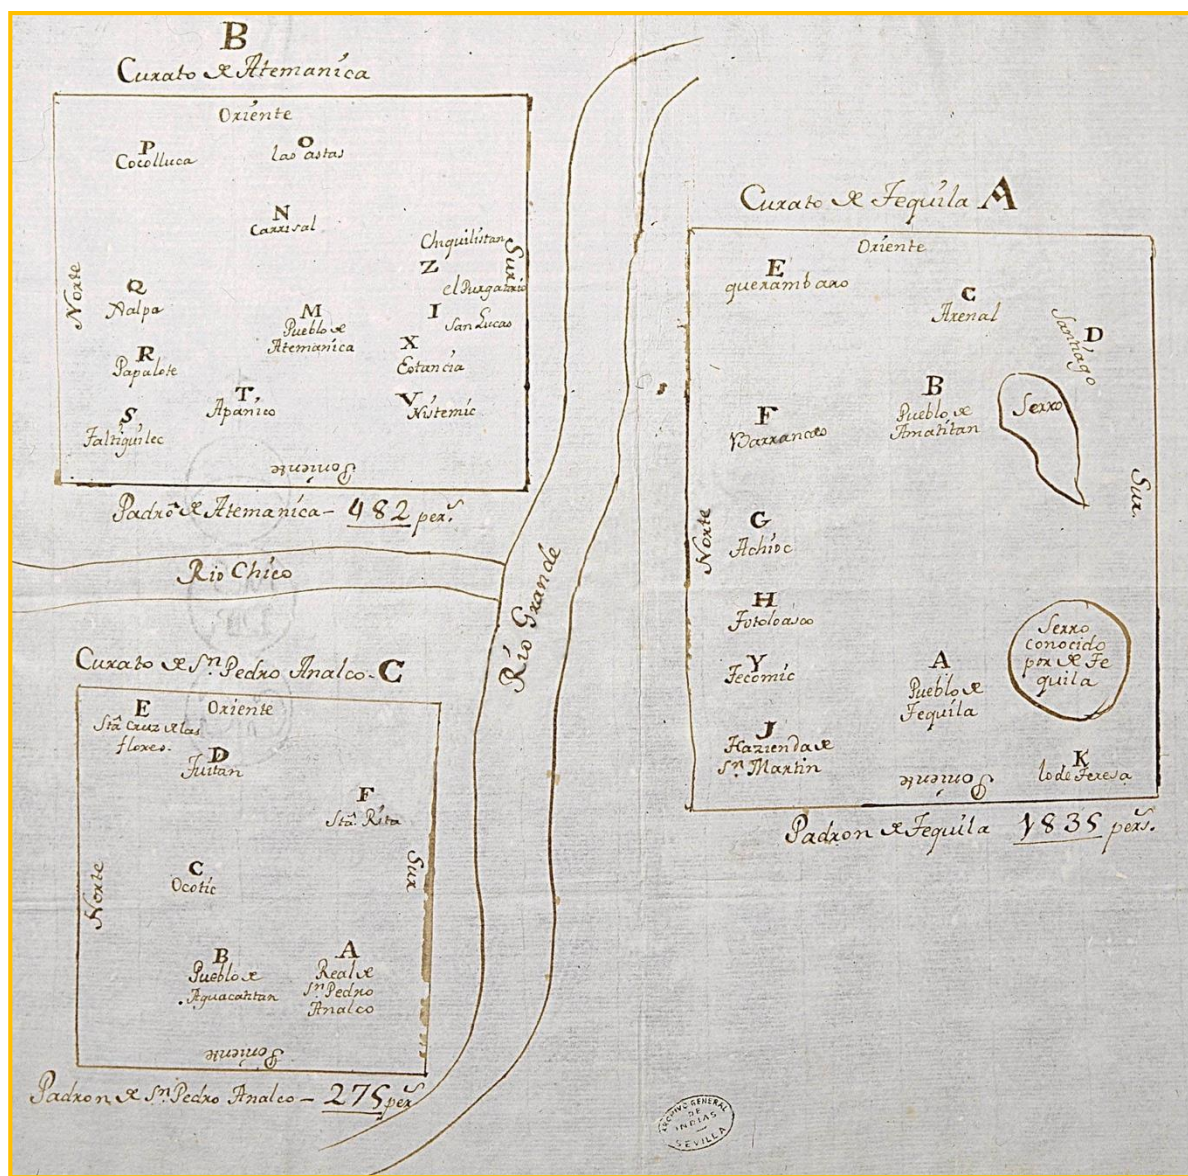 B
Curato de Atemanica
Oriente
P
Cocolluca
O
las astas
N
Carrisal
Chquilistan
Z
el Purgatorio
Sur
Norte
Q
Nalpa
M
Pueblo de
Atemanica
I
San Lucas
X
Estancia
R
Papalote
T
Apanico
V
Nistemic
S
Taltiquilec
Poniente
Padrõ de Atemanica - 482 pers.
Rio Chico
Rio Grande
Curato de Sn. Pedro Analco - C
Oriente
E
Sta. Cruz de las
flores.
D
Tuitan
F
Sta. Rita
Norte
Sur
C
Ocotic
B
Pueblo de
Aguacatitan
A
Real de
Sn. Pedro
Analco
Poniente
Padron de Sn. Pedro Analco - 275 pers
Curato de Tequila A
Oriente
E
querambaro
C
Arenal
D
Santiago
B
Pueblo de
Amatitan
Serro
F
Barrancas
Norte
Sur.
G
Achioc
H
Totoloasco
Y
Tecomic
A
Pueblo de
Tequila
Serro
conocido
por de Te
quila
J
Hazienda de
Sn. Martin
K
lo de Teresa
Poniente
Padron de Tequila 1835 pers.
ARCHIVO GENERAL
DE
INDIAS
SEVILLA